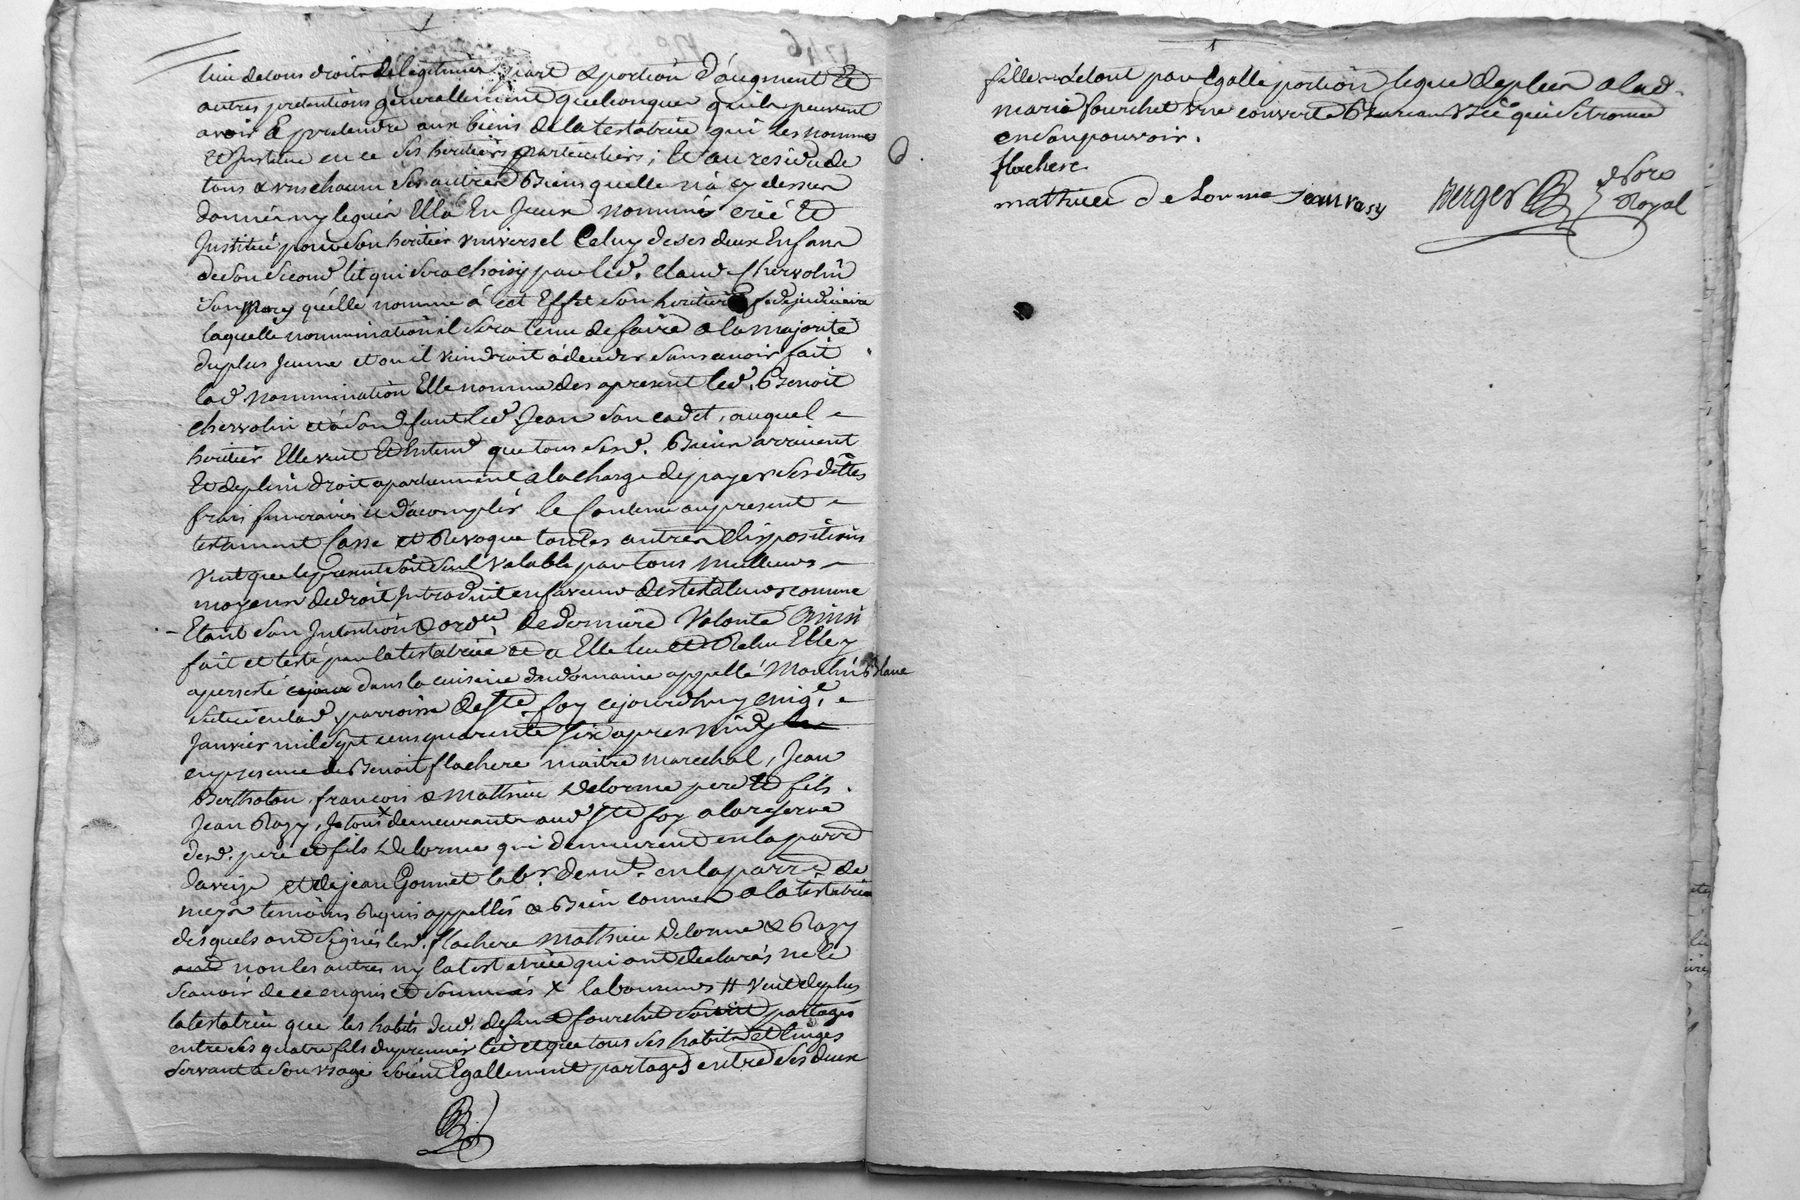 lieu de tous droits de legitimes part & portion d'augment Et
autres pretentions generallement quelconques quils peuvent
avoir & pretendre aux biens de la testatrice qui les nomme
Et Institue en ce ses heritiers particuliers; Et au residu de
tous & uns chacuns ses autres Biens quelle n'a cy dessus
donnés ny legués Ella En Iceux nommé créé Et
Institué pour son heritier universel Celuy de ses deux Enfans
de son second lit qui sera choisy par led. Claude Chervolin
son Mary quelle nomme à cet Effet son heritier fideijudiciaire
laquelle nommination il sera tenu de faire a la majorité
du plus Jeune et ou il viendroit à deceder sans avoir fait
lad. nommination Elle nomme des apresent led. Benoit
chervolin et à son deffaut led. Jean son cadet, auquel
heritier Elle veut Et Entend que tous sesd. Biens arrivent
Et de plein droit apartiennent a la charge de payer ses dettes
frais funeraires et d'acomplir le Contenu au present
testament Casse et Revoque toutes autres dispositions
veut que le present soit seul valable par tous meilleurs
moyens de droit Introduit en faveur des testateurs comme
Etant son Intention & ord.re de derniere volonté Ainsi
fait et testé par la testatrice et a Elle leu et Releu Elle y
a persisté dans la cuisine du domaine appellé Moulin Blanc
situé en lad. parroisse de Ste foy cejourdhuy cinq.e
Janvier mil sept cens quarante six apres midy
en presence de Benoit flachere maitre marechal, Jean
Bertholon, francois & Mathieu Delorme pere Et fils.
Jean Razy, x demeurants aud. Ste foy a la reserve
desd. pere et fils Delorme qui demeurent en la parr.e
daveize et de jean Gonnet lab.r dem.t en la parr.e de
meys temoins Requis appellés & Bien connus a la testatrice
desquels ont signés lesd. flachere Mathieu Delorme & Razy
non les autres ny la testatrice qui ont declarés ne le
scavoir de ce enquis et sommés x laboureurs # veut de plus
la testatrice que les habits dud. defunt fourchet soient partagés
entre ses quatre fils du premier lit et que tous ses habits et linges
servant a son usage soient Egallement partagés entre ses deux
fille le tout par Egalle portion, legue de plus a lad.
marie fourchet une couverte qui se trouve
en son pouvoir.
flachere
mathieu delorme Jean rasy Berger Nore Royal